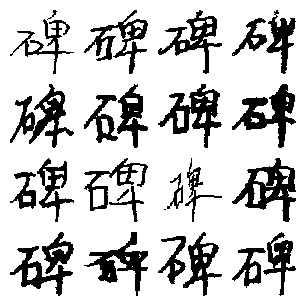 碑碑碑碑
碑碑碑碑
碑碑碑碑
碑碑碑碑